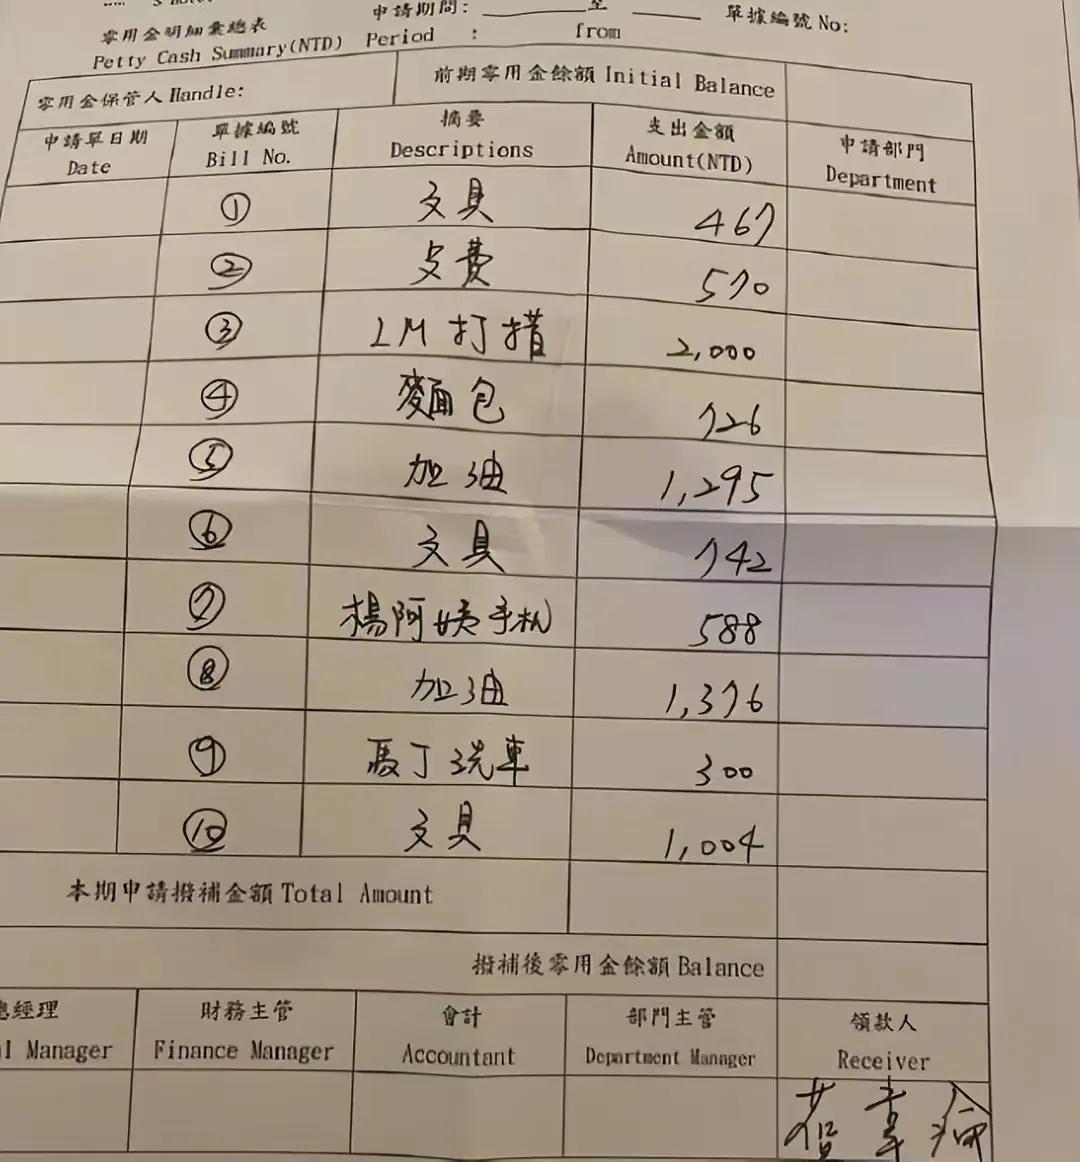 申請期間: 至
單據編號 No:
零用金明細彙總表
Petty Cash Summary(NTD) Period : from
零用金保管人 Handle: 前期零用金餘額 Initial Balance
申請單日期 單據編號 摘要 支出金額 申請部門
Date Bill No. Descriptions Amount(NTD) Department
① 文具 467
② 570
③ 2,000
④ 麵包 726
⑤ 加油 1,295
⑥ 文具 742
⑦ 楊阿姨手机 588
⑧ 加油 1,376
⑨ 馬丁洗車 300
⑩ 文具 1,004
本期申請撥補金額 Total Amount
撥補後零用金餘額 Balance
總經理 財務主管 會計 部門主管 領款人
Manager Finance Manager Accountant Department Manager Receiver